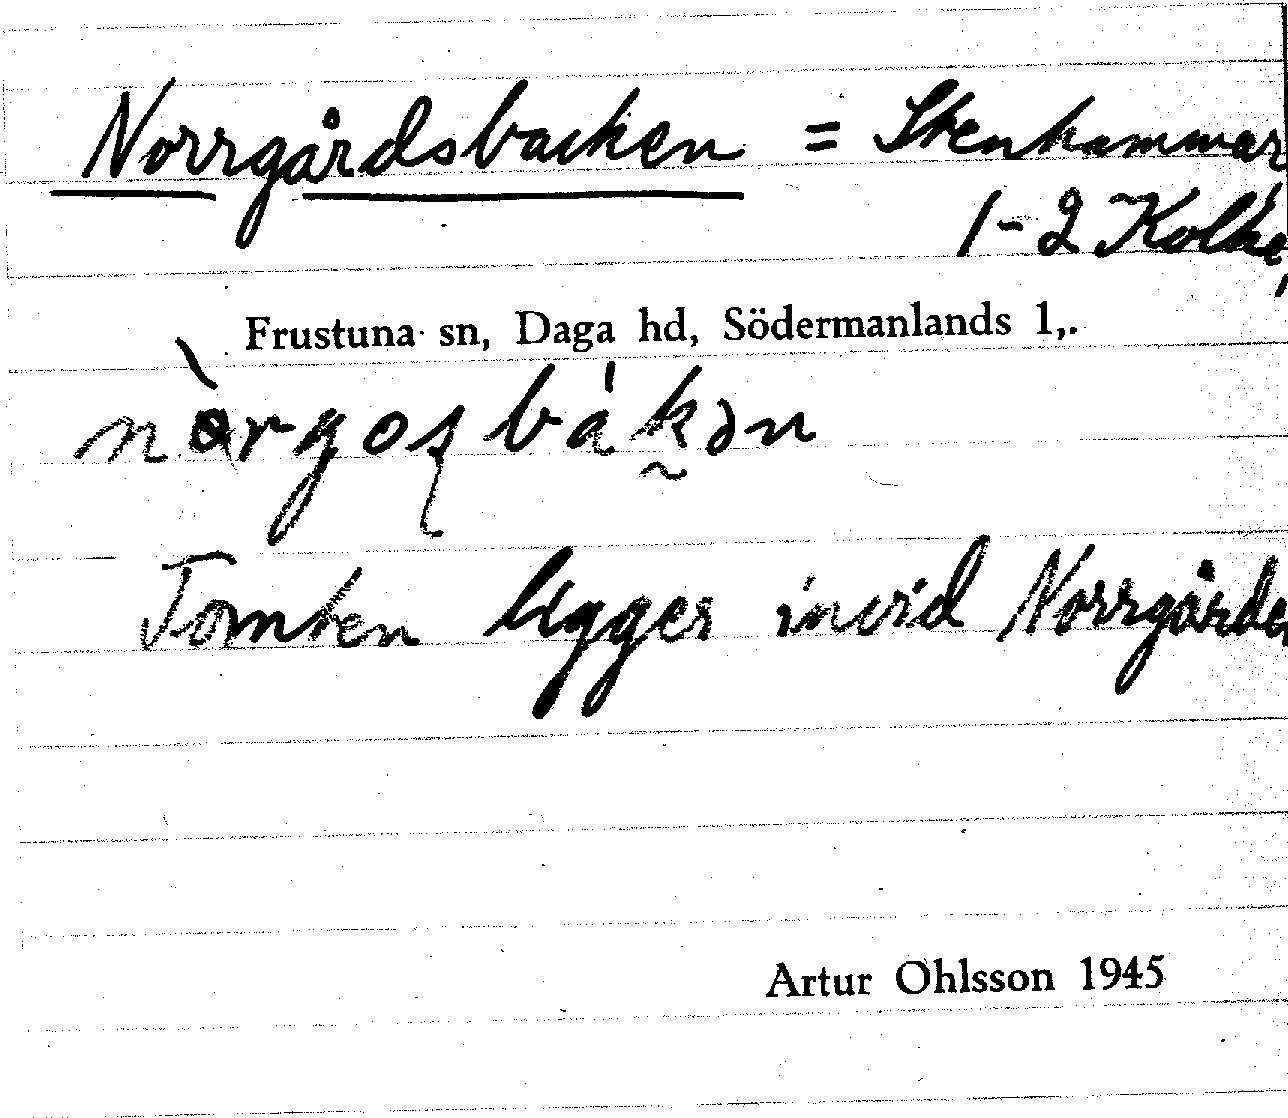 Norrgårdsbacken = Stenhammar
1-2 Kolke
Frustuna sn, Daga hd, Södermanlands l,.
Tomten ligger invid Norrgården
Artur Ohlsson 1945